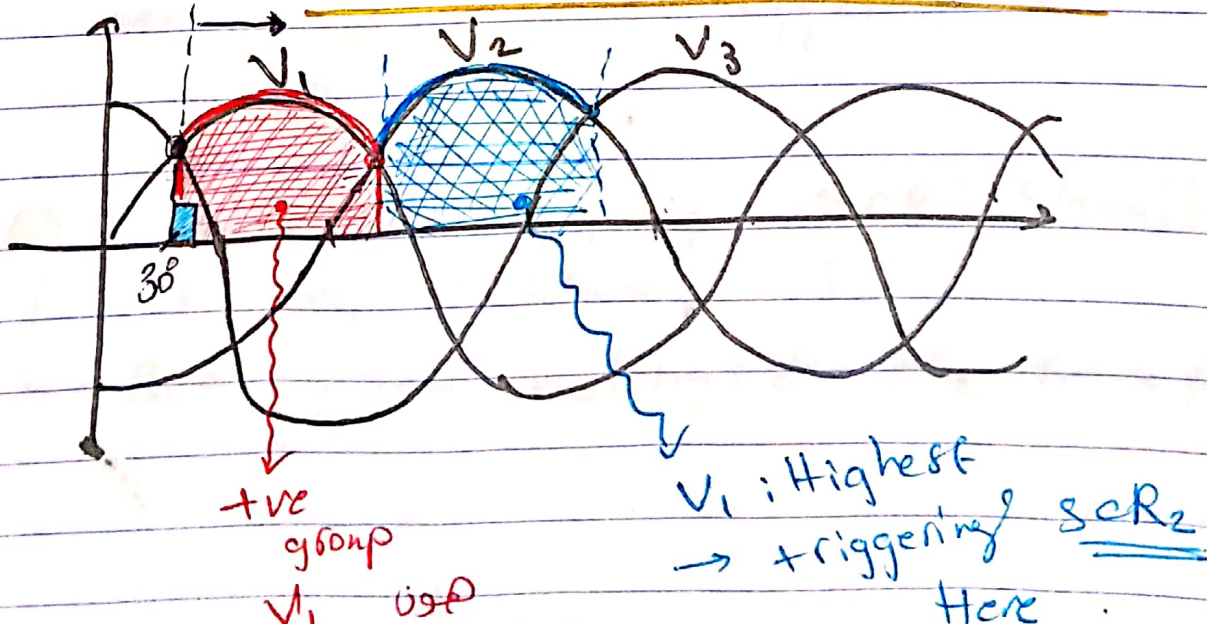 V₁ V₂ V₃
30°
+ve
group
V₁
V₁ : Highest
→ triggering SCR₂
Here .